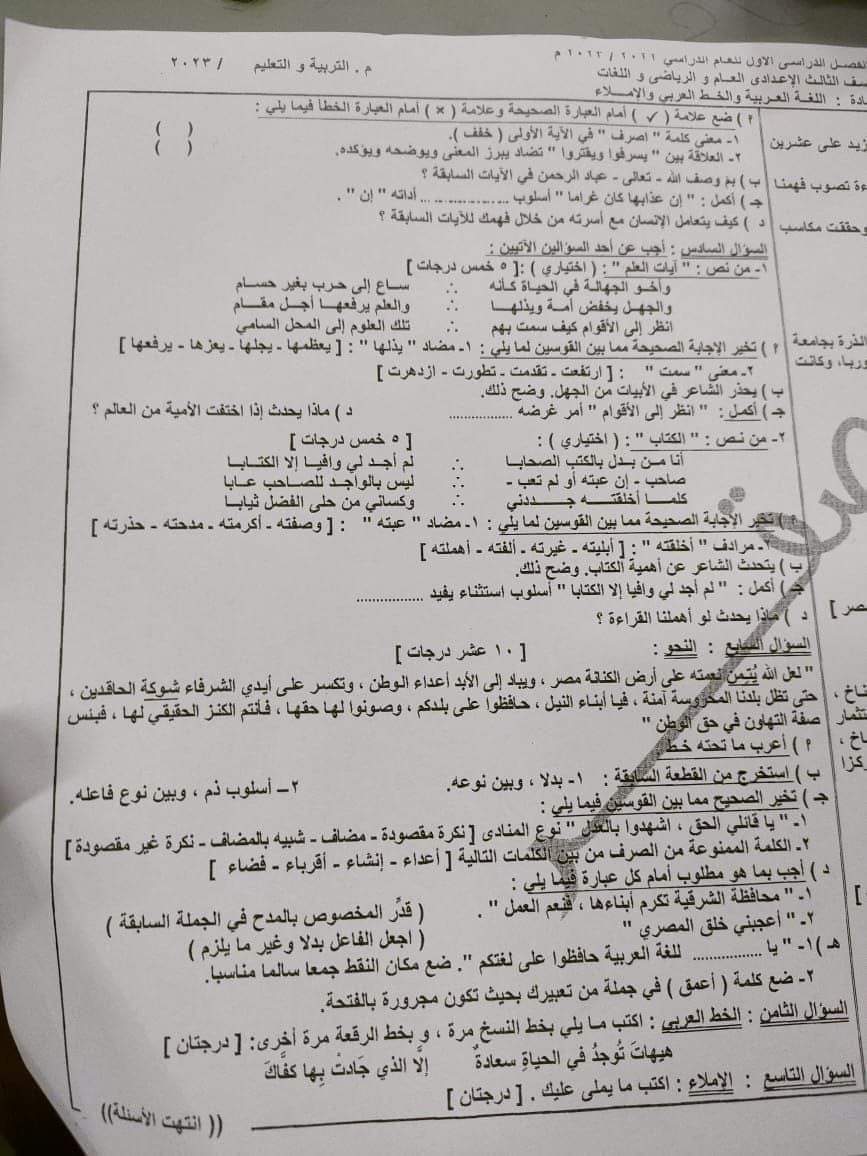 الفصل الدراسي الأول للعام الدراسي ٢٠٢١ / ٢٠٢٢ م
م . التربية و التعليم / ٢٠٢٣
الصف الثالث الإعدادي العام و الرياضى و اللغات
مادة : اللغة العربية والخط العربي والإملاء
أ ( ضع علامة ( ✓ ) أمام العبارة الصحيحة وعلامة ( × ) أمام العبارة الخطأ فيما يلي :
١- معنى كلمة " اصرف " في الآية الأولى ( خفف ). ( )
٢- العلاقة بين " يسرفوا ويقتروا " تضاد يبرز المعنى ويوضحه ويؤكده. ( )
ب ( بم وصف الله – تعالى – عباد الرحمن في الآيات السابقة ؟
جـ ( أكمل : " إن عذابها كان غراما " أسلوب .................. أداته " إن " .
د ( كيف يتعامل الإنسان مع أسرته من خلال فهمك للآيات السابقة ؟
السؤال السادس : أجب عن أحد السؤالين الآتيين :
١- من نص : " آيات العلم " : ( اختياري ) : [ ٥ خمس درجات ]
وأخو الجهالة في الحياة كأنه ∴ ساع إلى حرب بغير حسام
والجهل يخفض أمة ويذلها ∴ والعلم يرفعها أجل مقام
انظر إلى الأقوام كيف سمت بهم ∴ تلك العلوم إلى المحل السامي
أ ( تخير الإجابة الصحيحة مما بين القوسين لما يلي : ١- مضاد " يذلها " : [ يعظمها – يجلها – يعزها – يرفعها ]
٢- معنى " سمت " : [ ارتفعت – تقدمت – تطورت – ازدهرت ]
ب ( يحذر الشاعر في الأبيات من الجهل . وضح ذلك.
جـ ( أكمل : " انظر إلى الأقوام " أمر غرضه .............. د ( ماذا يحدث إذا اختفت الأمية من العالم ؟
٢- من نص : " الكتاب " : ( اختياري ) : [ ٥ خمس درجات ]
أنا من بدل بالكتب الصحابا ∴ لم أجد لي وافيا إلا الكتابا
صاحب – إن عبته أو لم تعب – ∴ ليس بالواجد للصاحب عابا
كلما أخلقته جددني ∴ وكساني من حلى الفضل ثيابا
أ ( تخير الإجابة الصحيحة مما بين القوسين لما يلي : ١- مضاد " عبته " : [ وصفته – أكرمته – مدحته – حذرته ]
٢- مرادف " أخلقته " : [ أبليته – غيرته – ألفته – أهملته ]
ب ( يتحدث الشاعر عن أهمية الكتاب . وضح ذلك.
جـ ( أكمل : " لم أجد لي وافيا إلا الكتابا " أسلوب استثناء يفيد ..............
د ( ماذا يحدث لو أهملنا القراءة ؟
السؤال السابع : النحو : [ ١٠ عشر درجات ]
" لعل الله يُتِمن نعمته على أرض الكنانة مصر ، ويباد إلى الأبد أعداء الوطن ، وتكسر على أيدي الشرفاء شوكة الحاقدين ،
حتى تظل بلدنا المحروسة آمنة ، فيا أبناء النيل ، حافظوا على بلدكم ، وصونوا لها حقها ، فأنتم الكنز الحقيقي لها ، فبئس
صفة التهاون في حق الوطن "
أ ( أعرب ما تحته خط
ب ( استخرج من القطعة السابقة : ١- بدلا ، وبين نوعه. ٢- أسلوب ذم ، وبين نوع فاعله.
جـ ( تخير الصحيح مما بين القوسين فيما يلي :
١- " يا قائلي الحق ، اشهدوا بالعدل " نوع المنادى [ نكرة مقصودة – مضاف – شبيه بالمضاف – نكرة غير مقصودة ]
٢- الكلمة الممنوعة من الصرف من بين الكلمات التالية [ أعداء – إنشاء – أقرباء – فضاء ]
د ( أجب بما هو مطلوب أمام كل عبارة فيما يلي :
١- " محافظة الشرقية تكرم أبناءها ، فنعم العمل " . ( قدِّر المخصوص بالمدح في الجملة السابقة )
٢- " أعجبني خلق المصري " ( اجعل الفاعل بدلا وغير ما يلزم )
هـ ( ١- " يا .............. اللغة العربية حافظوا على لغتكم ". ضع مكان النقط جمعا سالما مناسبا.
٢- ضع كلمة ( أعمق ) في جملة من تعبيرك بحيث تكون مجرورة بالفتحة.
السؤال الثامن : الخط العربي : اكتب ما يلي بخط النسخ مرة ، و بخط الرقعة مرة أخرى: [ درجتان ]
هيهات تُوجدُ في الحياةِ سعادةٌ إلَّا الذي جَادتْ بِها كفَّاكَ
السؤال التاسع : الإملاء : اكتب ما يملى عليك . [ درجتان ]
(( انتهت الأسئلة ))
زيد على عشرين
وحققت مكاسب
الذرة بجامعة